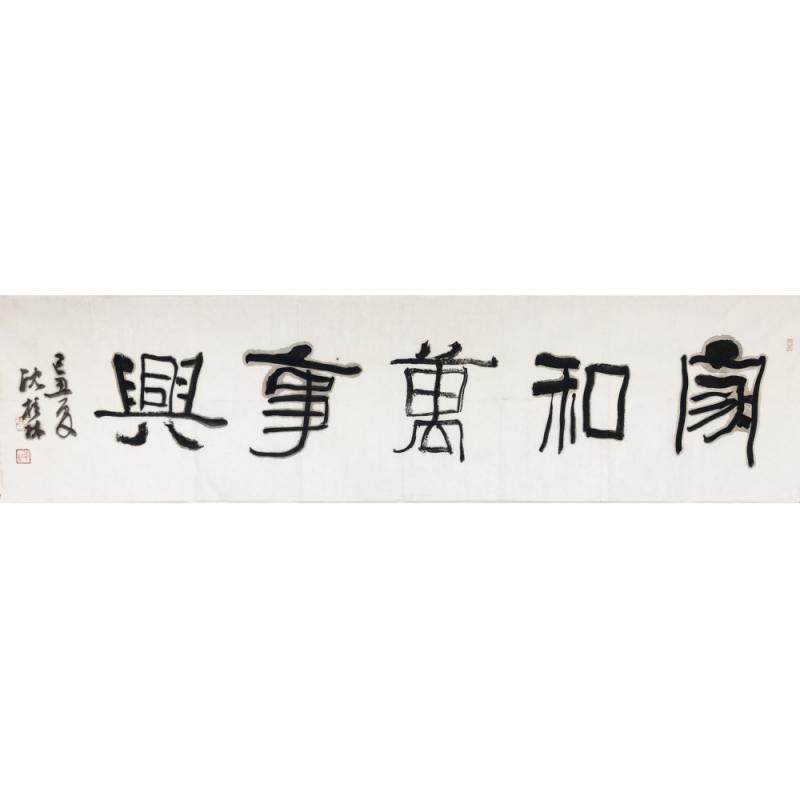 家和萬事興
己丑夏
沈桂林